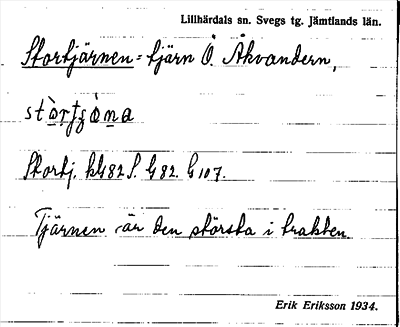 Lillhärdals sn. Svegs tg. Jämtlands län.
Stortjärnen = tjärn Ö. Åkvandern,
Stortj. kG82 S. G82. G107.
Tjärnen är den största i trakten.
Erik Eriksson 1934.